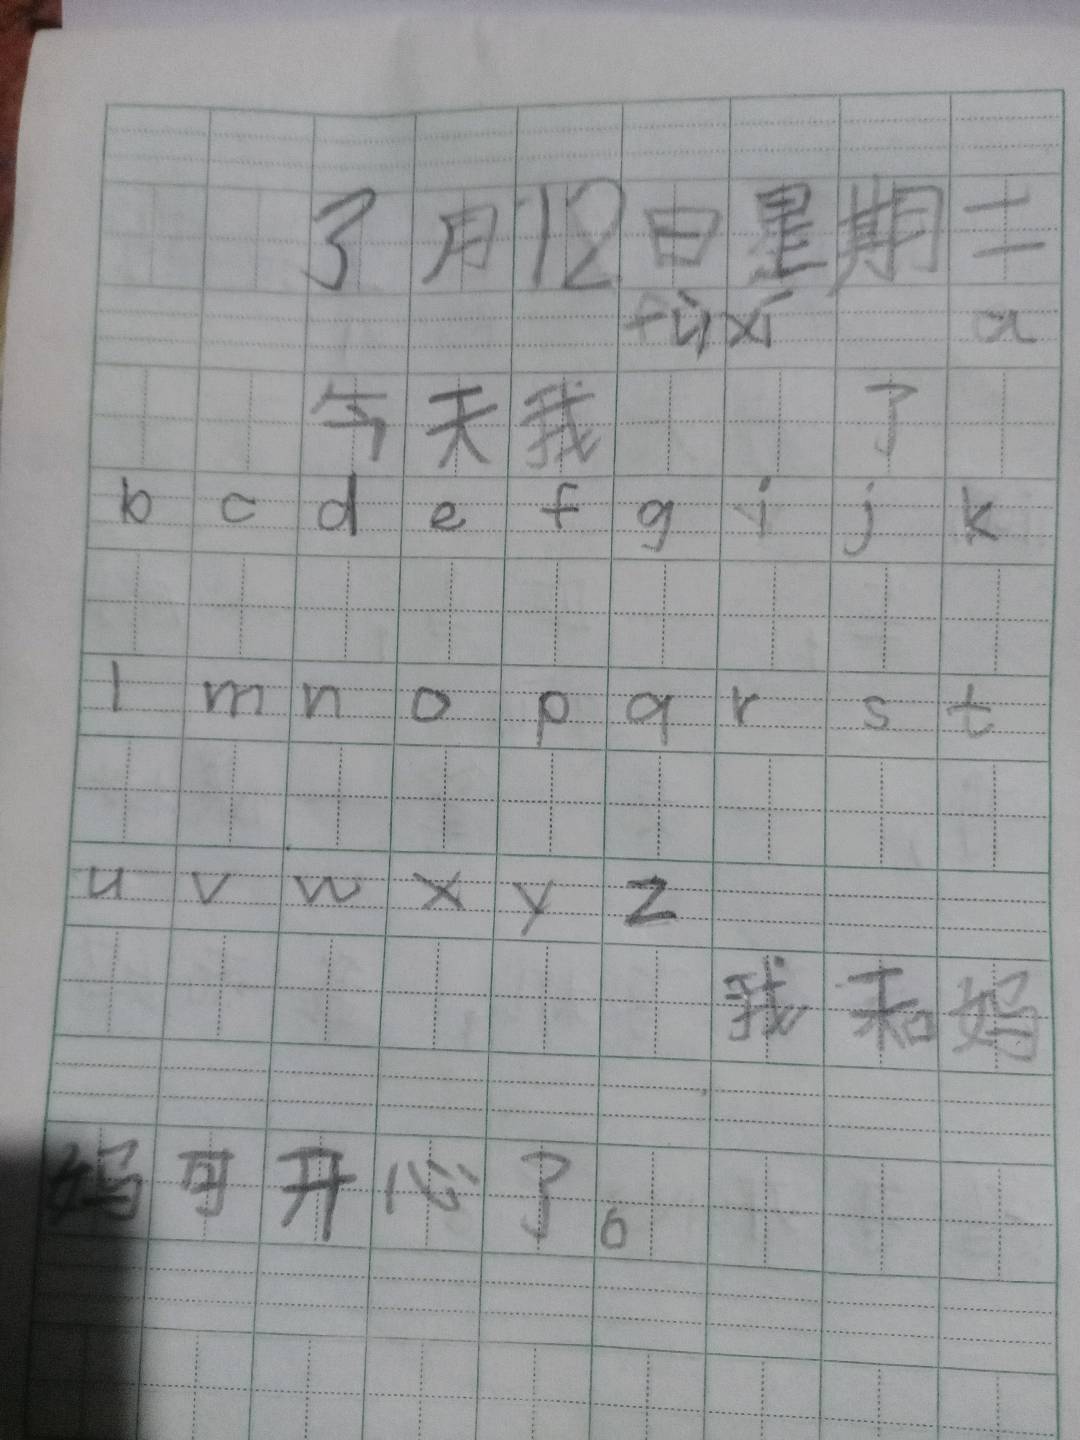 3月12日星期二
fù xí a
今天我 了
b c d e f g i j k
l m n o p q r s t
u v w x y z
我和妈
妈可开心了。